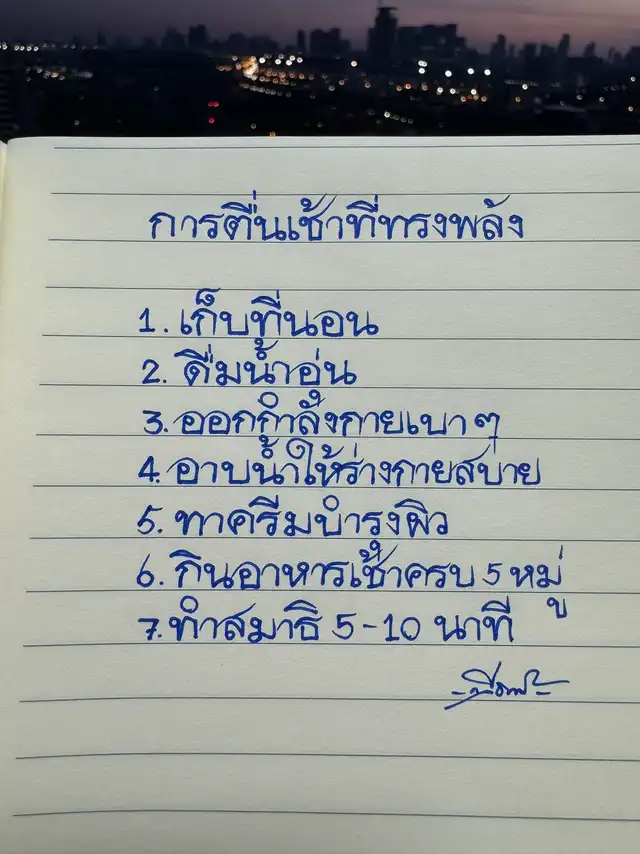 การตื่นเช้าที่ทรงพลัง
1. เก็บที่นอน
2. ดื่มน้ำอุ่น
3. ออกกำลังกายเบาๆ
4. อาบน้ำให้ร่างกายสบาย
5. ทาครีมบำรุงผิว
6. กินอาหารเช้าครบ 5 หมู่
7. ทำสมาธิ 5-10 นาที